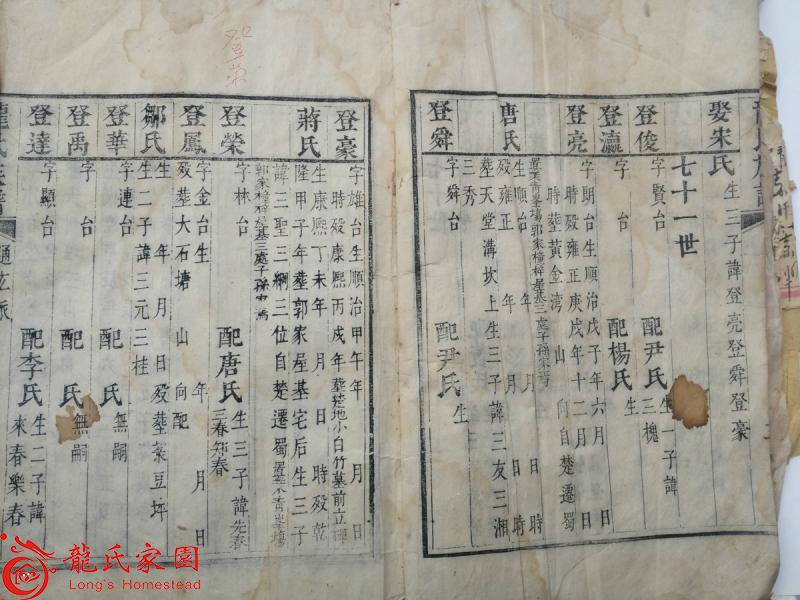 娶宋氏生三子諱登亮登舜登豪
七十一世
登俊字賢台 配尹氏生一子諱三槐
登瀛字 台 配楊氏生
登亮字期台生順治戊子年六月 日
時歿雍正庚戌年十二月 日
時葬黃金湾 山 向自楚遷蜀
唐氏生順治 年 月 日時
歿雍正 年 月 日時
葬天堂溝坎上生三子諱三友三湘
三秀
登舜字舜台 配尹氏生
登豪字雄台生順治甲午年 月 日
時歿康熙丙戌年葬楚地小白竹墓前立碑
蔣氏生康熙丁未年 月 日 時歿乾
隆甲子年葬郭家屋基宅后生三子
諱三聖三綱三位自楚遷蜀
登榮字林台 配唐氏生三子諱先春
三春知春
登鳳字金台生 年 月 日
歿葬大石塘 山 向配
鄒氏生 年 月 日歿葬案豆坪
生二子諱三元三桂
登華字連台 配 氏無嗣
登禹字 台 配 氏無嗣
登達字顯台 配李氏生二子諱
來春樂春
登榮
龍氏家園
Long's Homestead